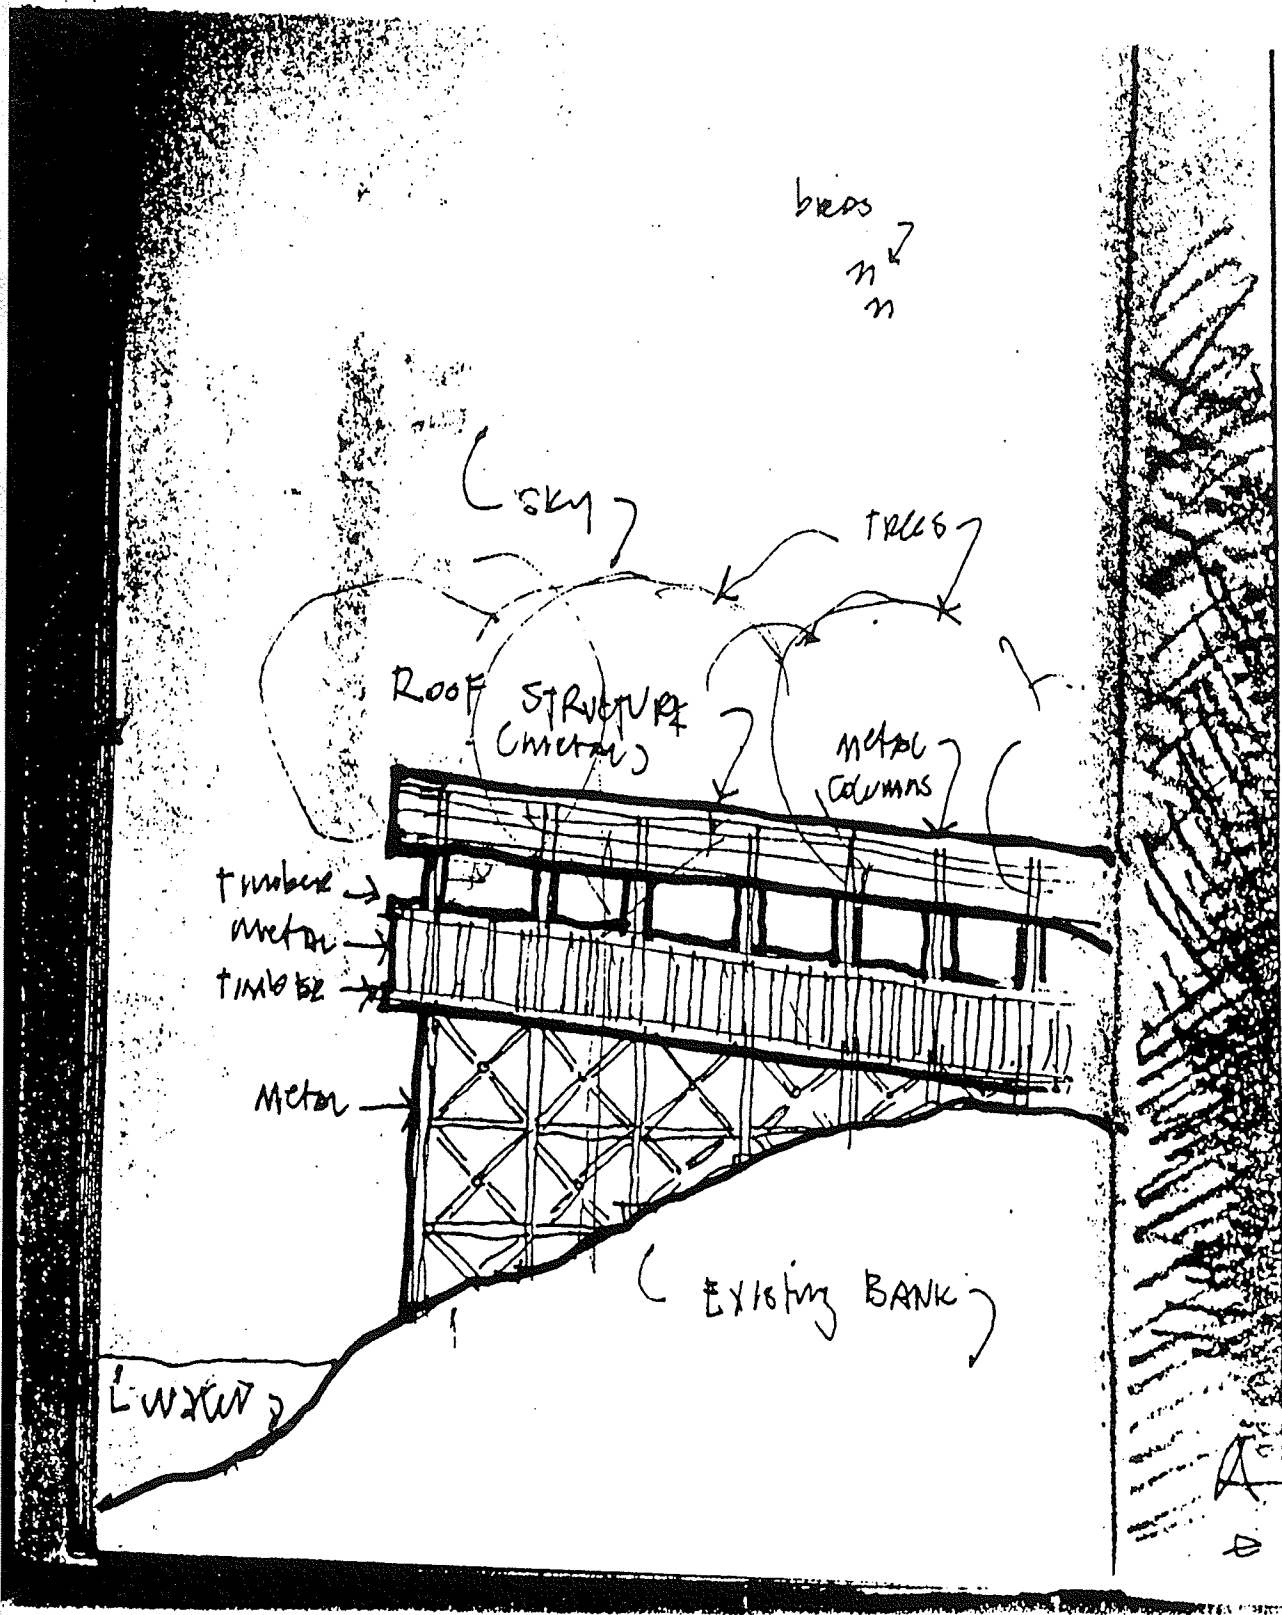 birds
SKY
TREES
ROOF STRUCTURE
(METAL)
METAL
COLUMNS
TIMBER
METAL
TIMBER
METAL
EXISTING BANK
WATER
A